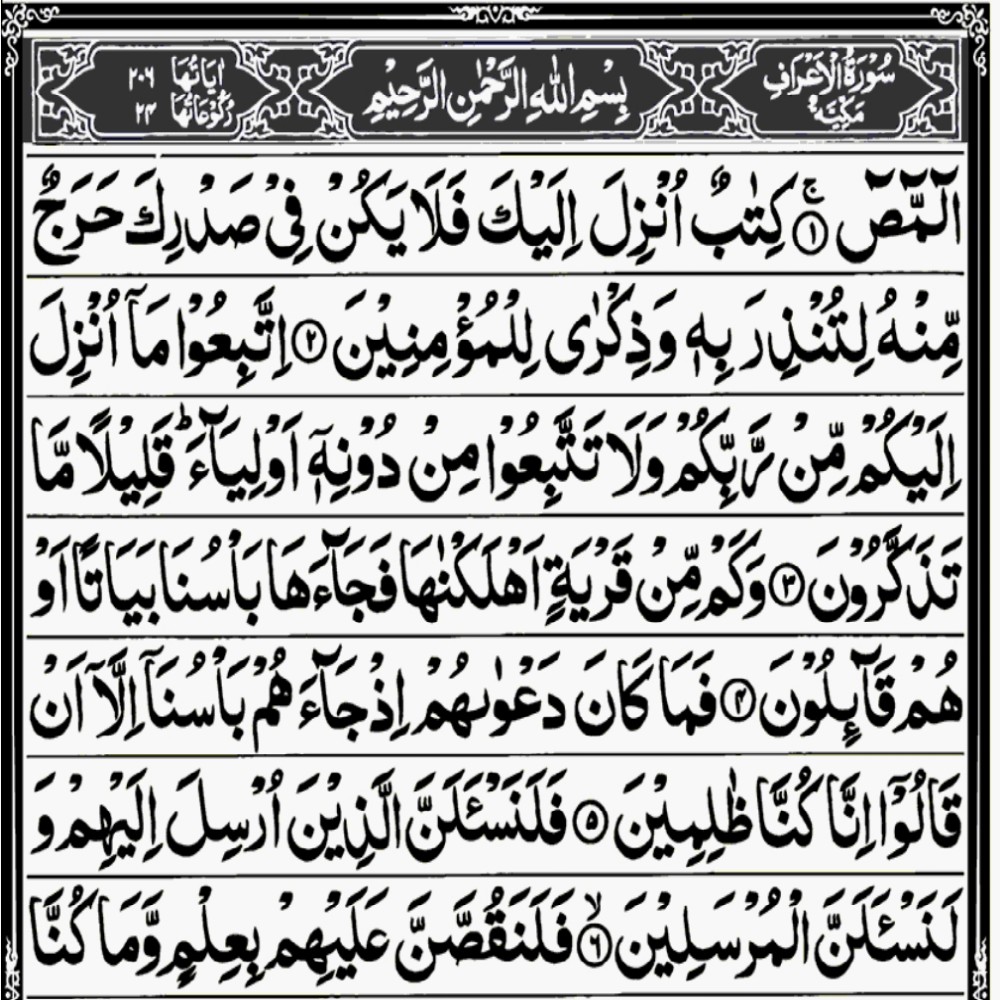 سُوْرَةُ الْاَعْرَافِ مَكِّيَّةٌ
بِسْمِ اللّٰهِ الرَّحْمٰنِ الرَّحِيْمِ
اٰيَاتُهَا ٢٠٦
رُكُوْعَاتُهَا ٢٤
الٓمّٓصٓ ۚ﴿١﴾ كِتٰبٌ اُنْزِلَ اِلَيْكَ فَلَا يَكُنْ فِيْ صَدْرِكَ حَرَجٌ
مِّنْهُ لِتُنْذِرَ بِهٖ وَذِكْرٰى لِلْمُؤْمِنِيْنَ ﴿٢﴾ اِتَّبِعُوْا مَآ اُنْزِلَ
اِلَيْكُمْ مِّنْ رَّبِّكُمْ وَلَا تَتَّبِعُوْا مِنْ دُوْنِهٖٓ اَوْلِيَآءَ ؕ قَلِيْلًا مَّا
تَذَكَّرُوْنَ ﴿٣﴾ وَكَمْ مِّنْ قَرْيَةٍ اَهْلَكْنٰهَا فَجَآءَهَا بَاْسُنَا بَيَاتًا اَوْ
هُمْ قَآىِٕلُوْنَ ﴿٤﴾ فَمَا كَانَ دَعْوٰىهُمْ اِذْ جَآءَهُمْ بَاْسُنَآ اِلَّآ اَنْ
قَالُوْٓا اِنَّا كُنَّا ظٰلِمِيْنَ ﴿٥﴾ فَلَنَسْـَٔلَنَّ الَّذِيْنَ اُرْسِلَ اِلَيْهِمْ وَ
لَنَسْـَٔلَنَّ الْمُرْسَلِيْنَ ۙ﴿٦﴾ فَلَنَقُصَّنَّ عَلَيْهِمْ بِعِلْمٍ وَّمَا كُنَّا